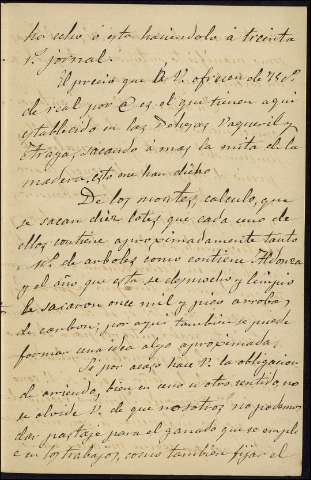 ho echo ó esta haciendolo á treinta
r.s jornal.
El precio que á V. ofrecen de 75 c.s
de real por @ es el que tienen aqui
establecido en las Dehejas Vaqueril y
Fragas, sacando a mas la mita de la
madera, esto me han dicho.
De los montes, calculo, que
se sacan diez lotes, que cada uno de
ellos contiene aproximadamente tanto
N.º de arboles como contiene Aldonza
y el año que esta se desmocho y limpio
le sacaron once mil y pico arrobas
de carbon; por aqui tambien se puede
formar una idea algo aproximada.
Si por acaso hace V. la obligacion
de arriendo, bien en uno u otro sentido, no
se olvide V. de que nosotros no podemos
dar pastaje para el ganado que se emple
e en los trabajos, como tambien fijar el